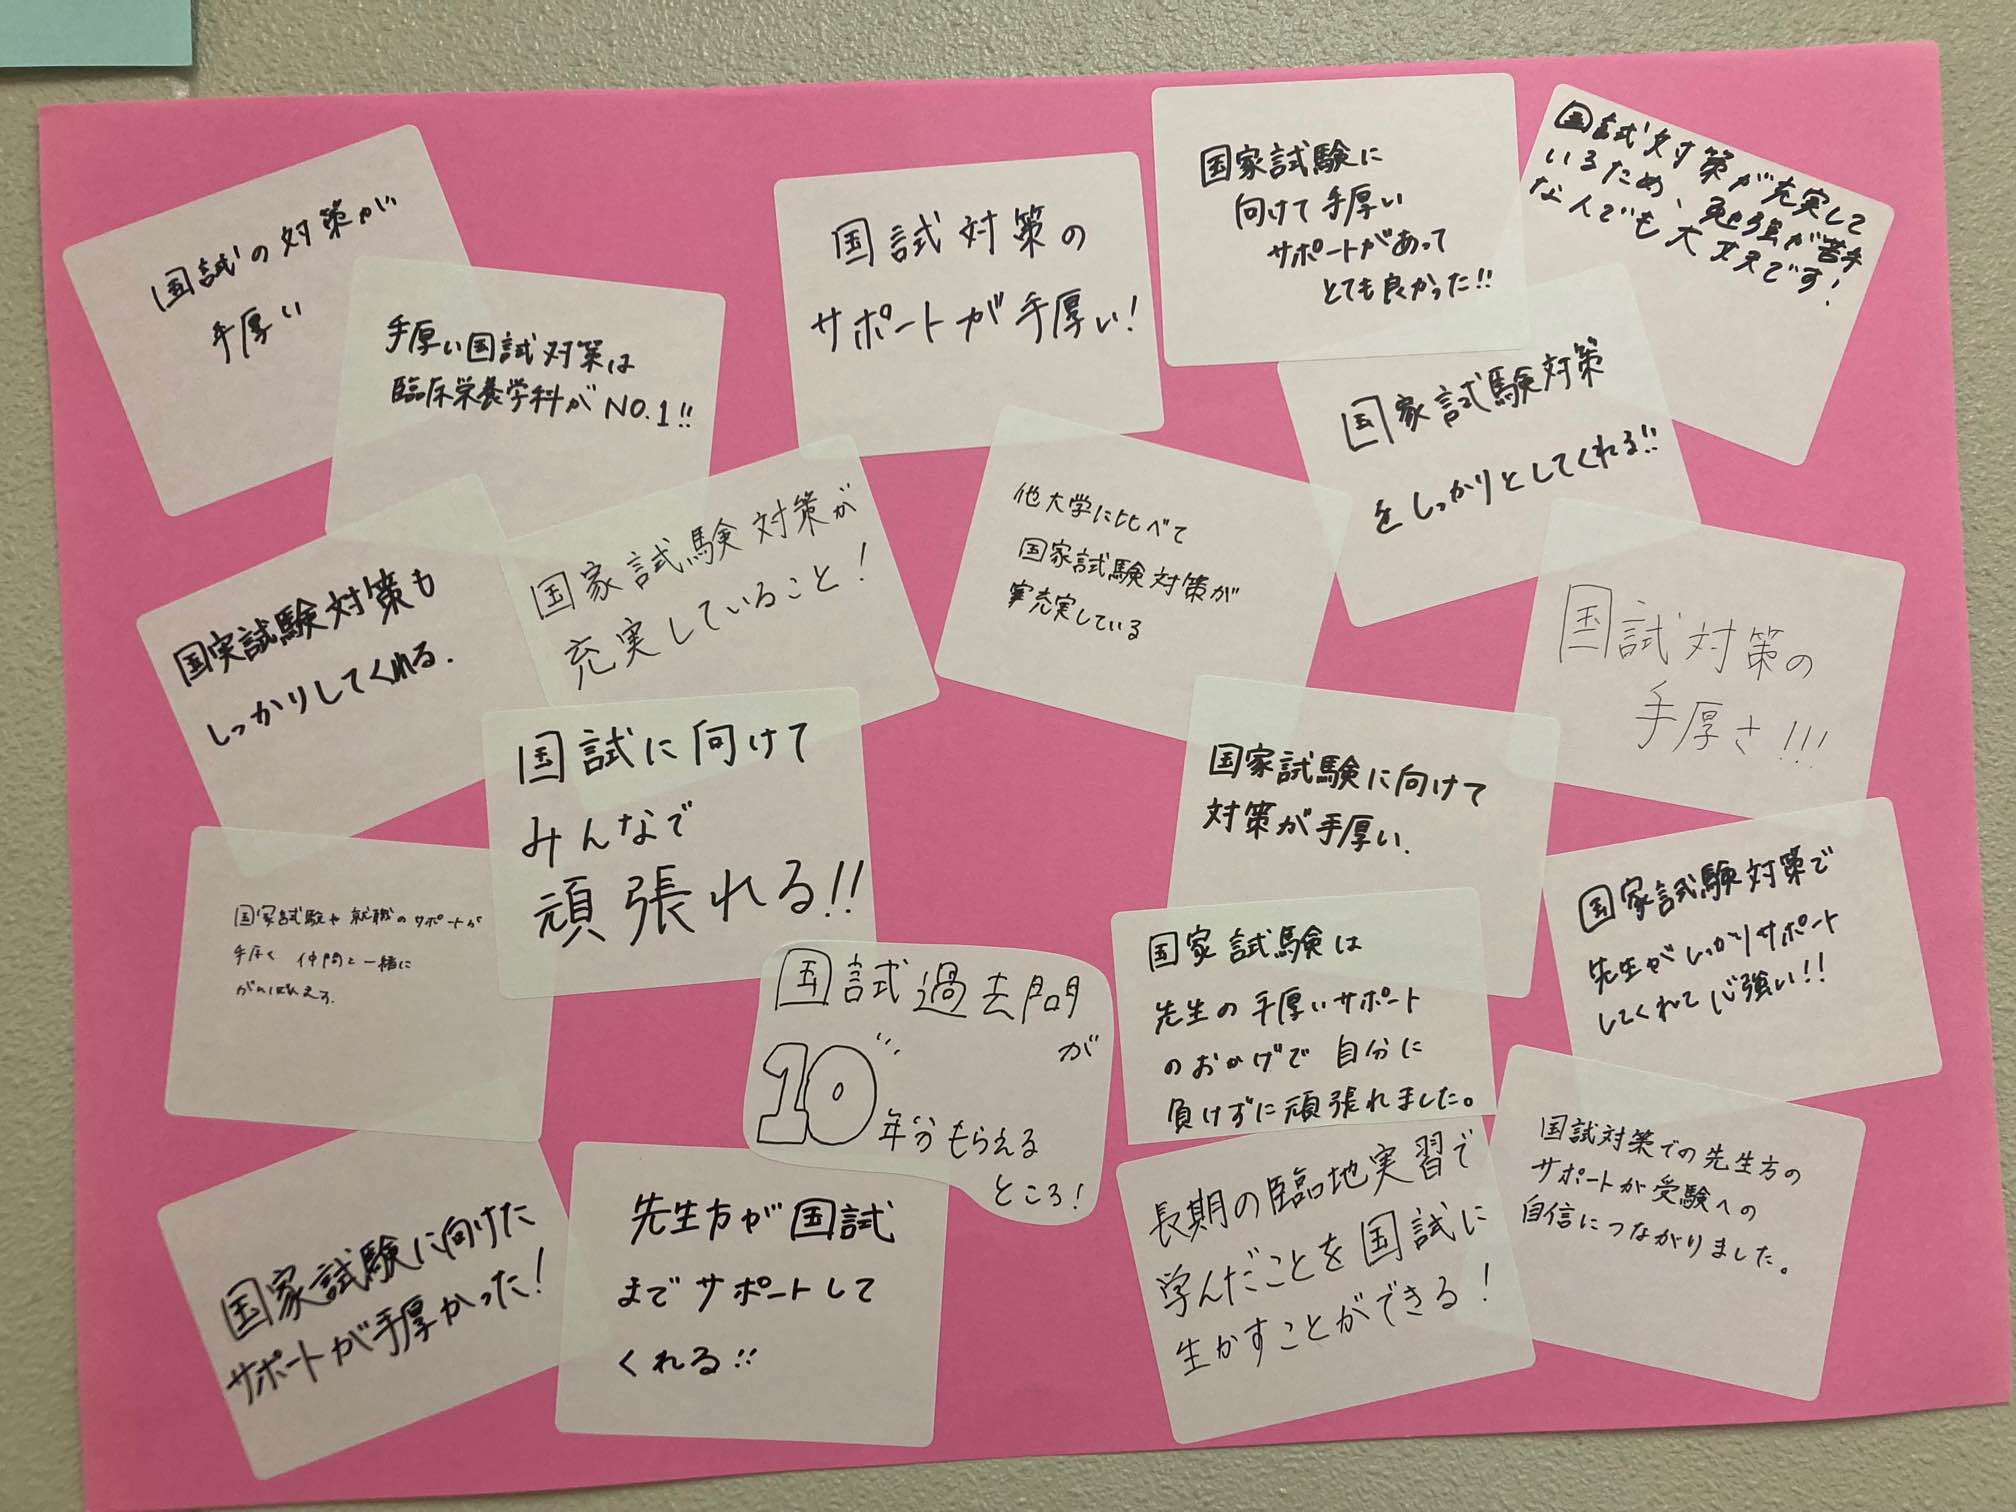 国試の対策が
手厚い
手厚い国試対策は
臨床栄養学科がNO.1!!
国試対策の
サポートが手厚い!
国家試験に
向けて手厚い
サポートがあって
とても良かった!!
国試対策が充実して
いるため、勉強が苦手
な人でも大丈夫です!
国家試験対策
をしっかりとしてくれる!!
国実試験対策も
しっかりしてくれる.
国家試験対策が
充実していること!
他大学に比べて
国家試験対策が
充実している
国試対策の
手厚さ!!!
国試に向けて
みんなで
頑張れる!!
国家試験に向けて
対策が手厚い.
国家試験対策で
先生がしっかりサポート
してくれて心強い!!
国家試験や就職のサポートが
手厚く 仲間と一緒に
がんばれる.
国試過去問が
10年分もらえる
ところ!
国家試験は
先生の手厚いサポート
のおかげで自分に
負けずに頑張れました。
国家試験に向けた
サポートが手厚かった!
先生方が国試
までサポートして
くれる!!
長期の臨地実習で
学んだことを国試に
生かすことができる!
国試対策での先生方の
サポートが受験への
自信につながりました。